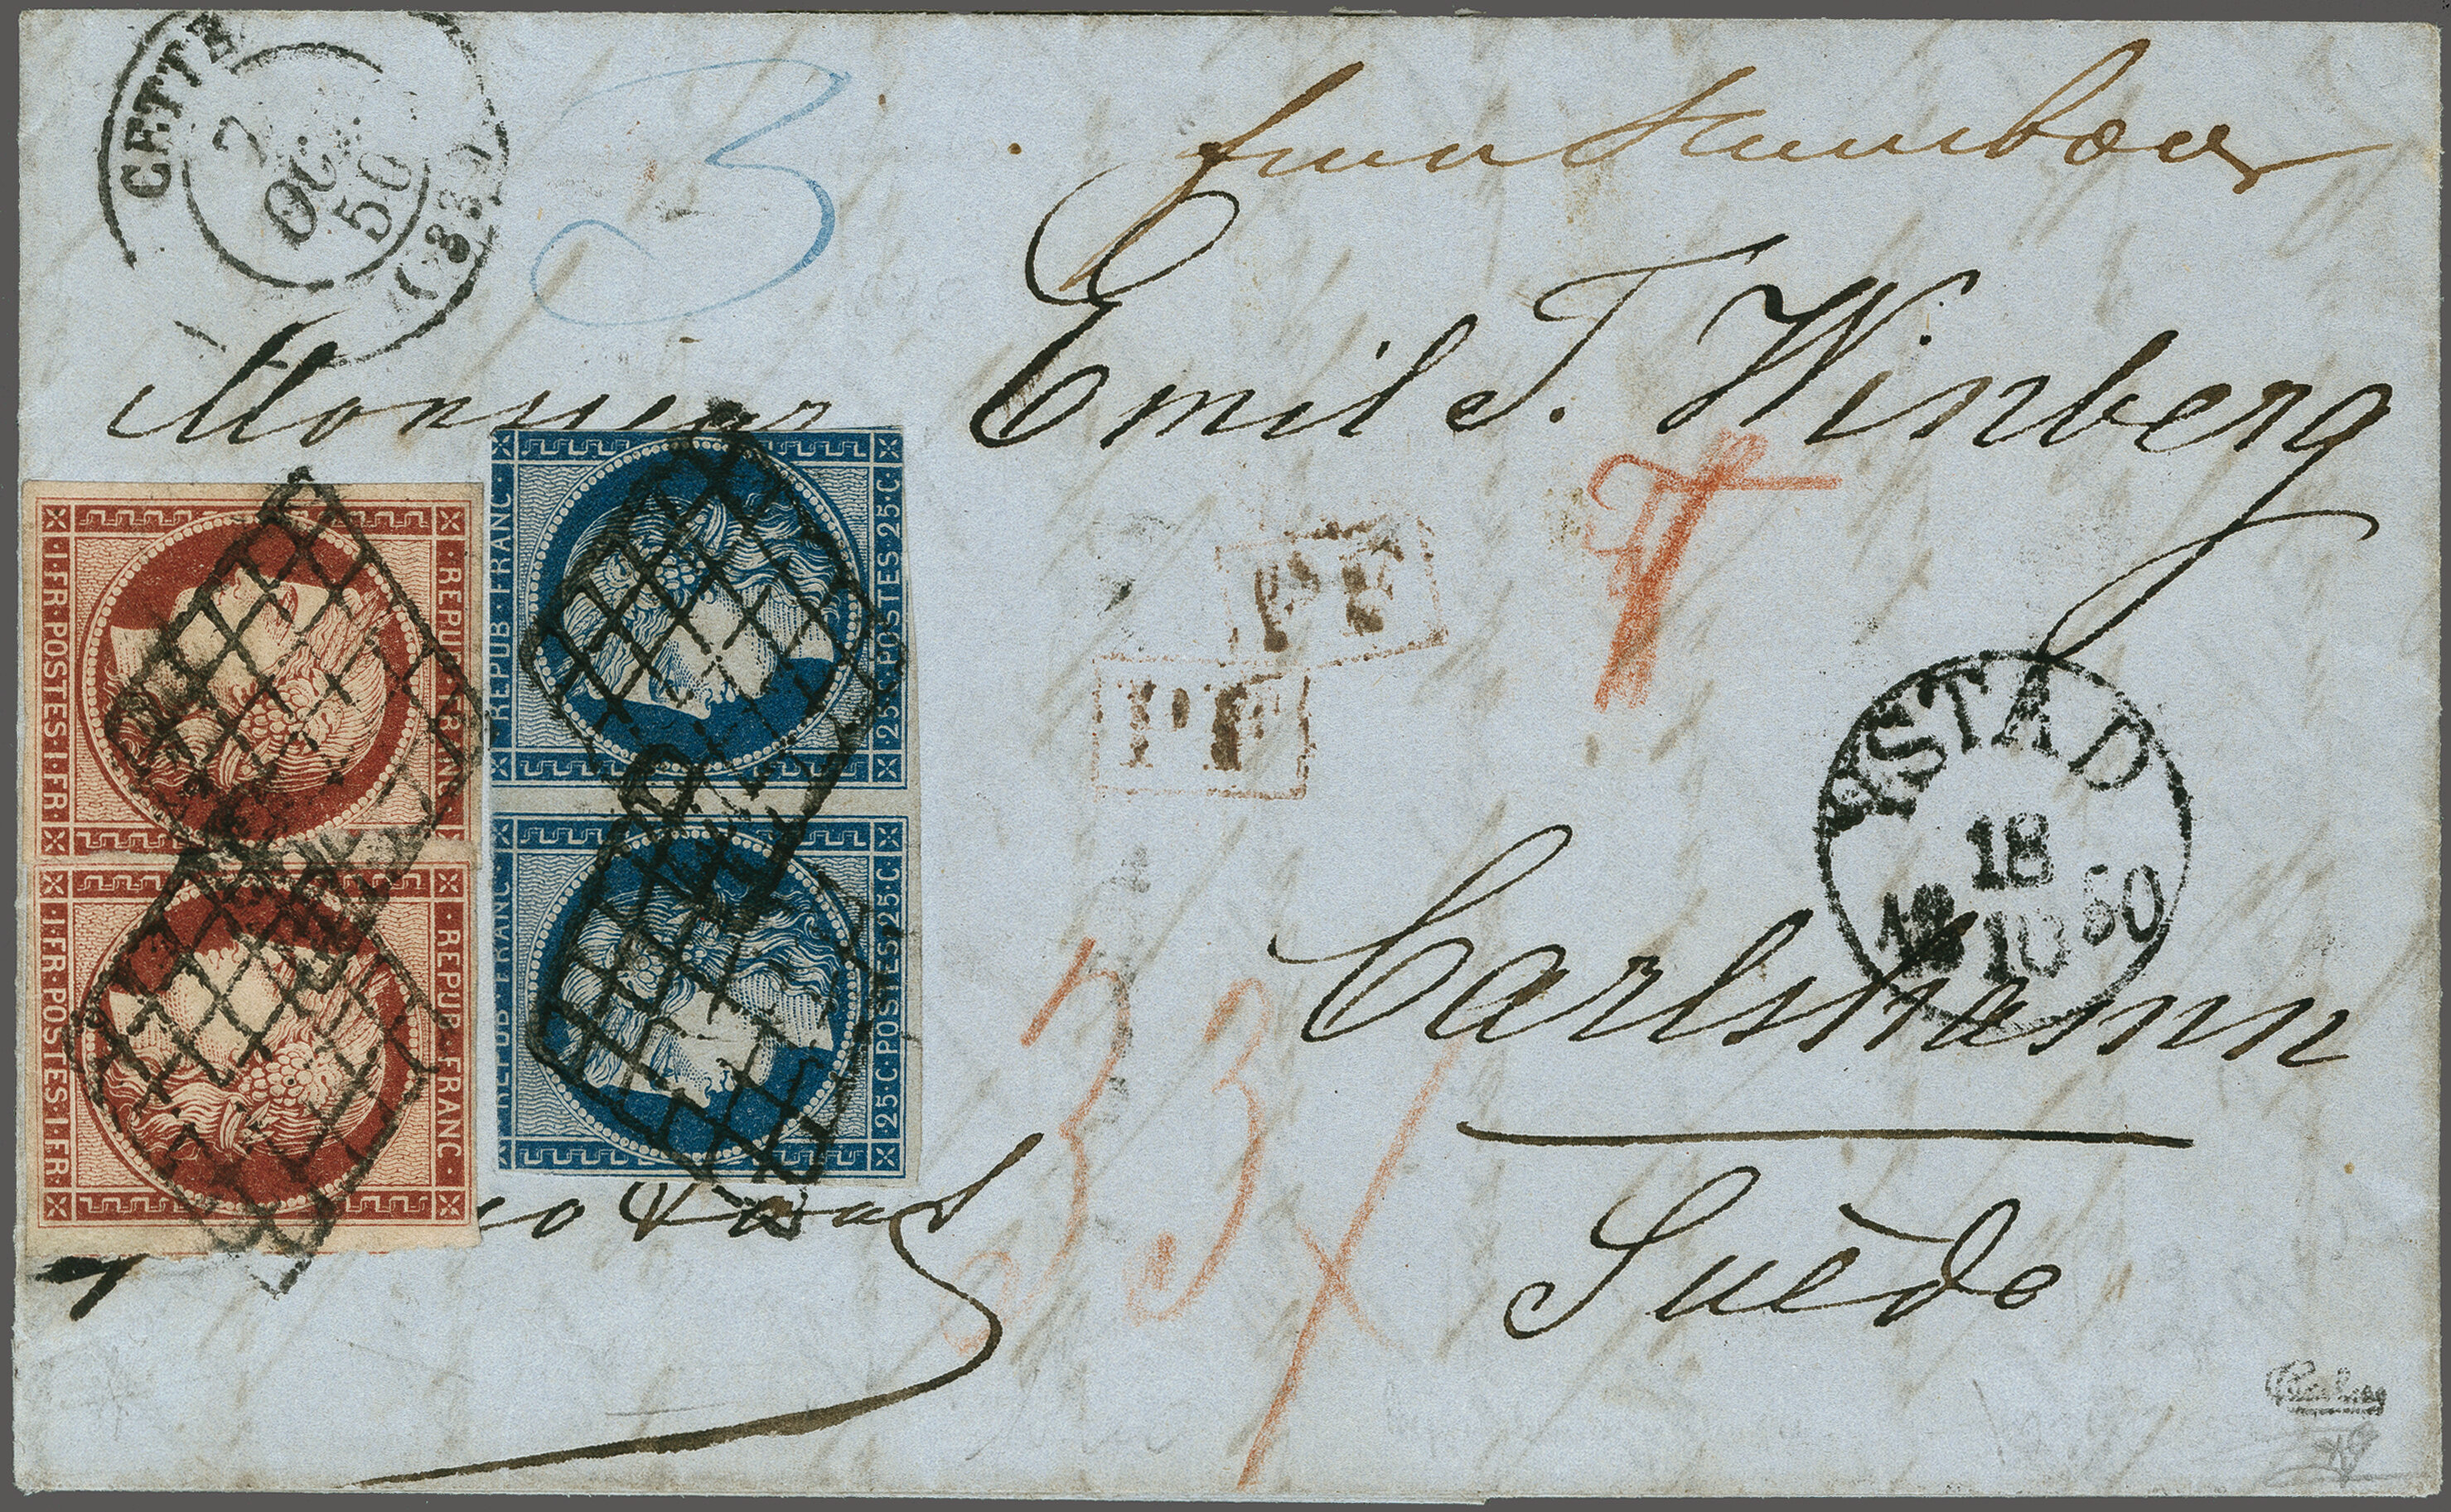 CETTE
2
OCT.
50
(33)
3
Monsieur Emil T. Winberg
PF
PF
YSTAD
18
10
50
Carlshamn
Suède
33
REPUB·FRANC·
25·C·POSTES·25·C·
REPUB·FRANC·
25·C·POSTES·25·C·
·REPUB·FRANC·
·1·FR·POSTES·1·FR·
·REPUB·FRANC·
·1·FR·POSTES·1·FR·